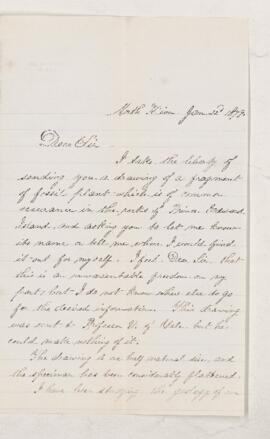 North River Jan 22d 187
Dear Sir
I take the liberty of
sending you a drawing of a fragment
of fossil plant which is of common
occurrence in the rocks of Prince Edward
Island, and asking you to let me know
its name or tell me where I could find
it out for myself. I feel, Dear Sir, that
this is an unwarrantable freedom on my
part, but I do not know where else to go
for the desired information. This drawing
was sent to Professor V. of Yale, but he
could make nothing of it.
The drawing is one half natural size, and
the specimen has been considerably flattened.
I have been studying the geology of our